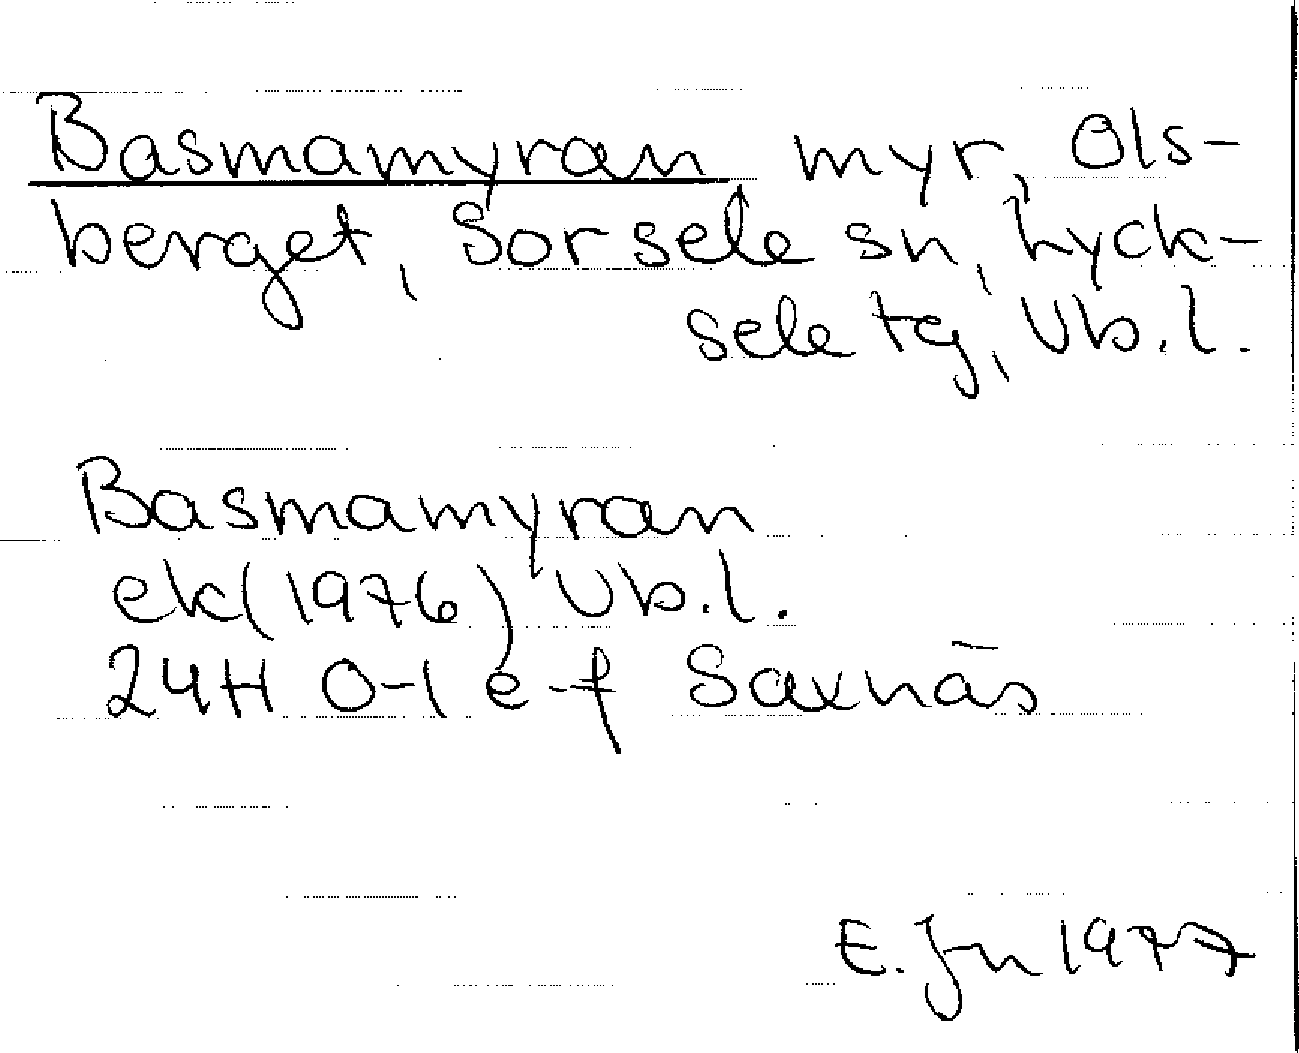 Basmamyran myr, Ols-
berget, Sorsele sn, Lyck-
sele tg, Vb.l.
Basmamyran
ek(1976) Vb.l.
24H 0-1 e-f Saxnäs
E. Jn 1977